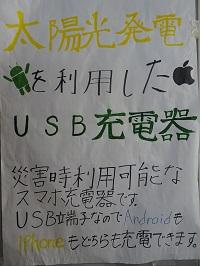 太陽光発電
を利用した
USB充電器
災害時利用可能な
スマホ充電器です。
USB端子なのでAndroidも
iPhoneもどちらも充電できます。